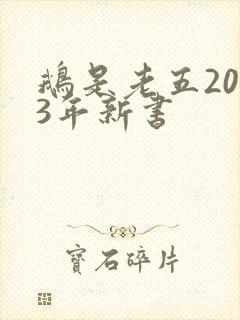 鵝是老五20
3年新書
寶石碎片